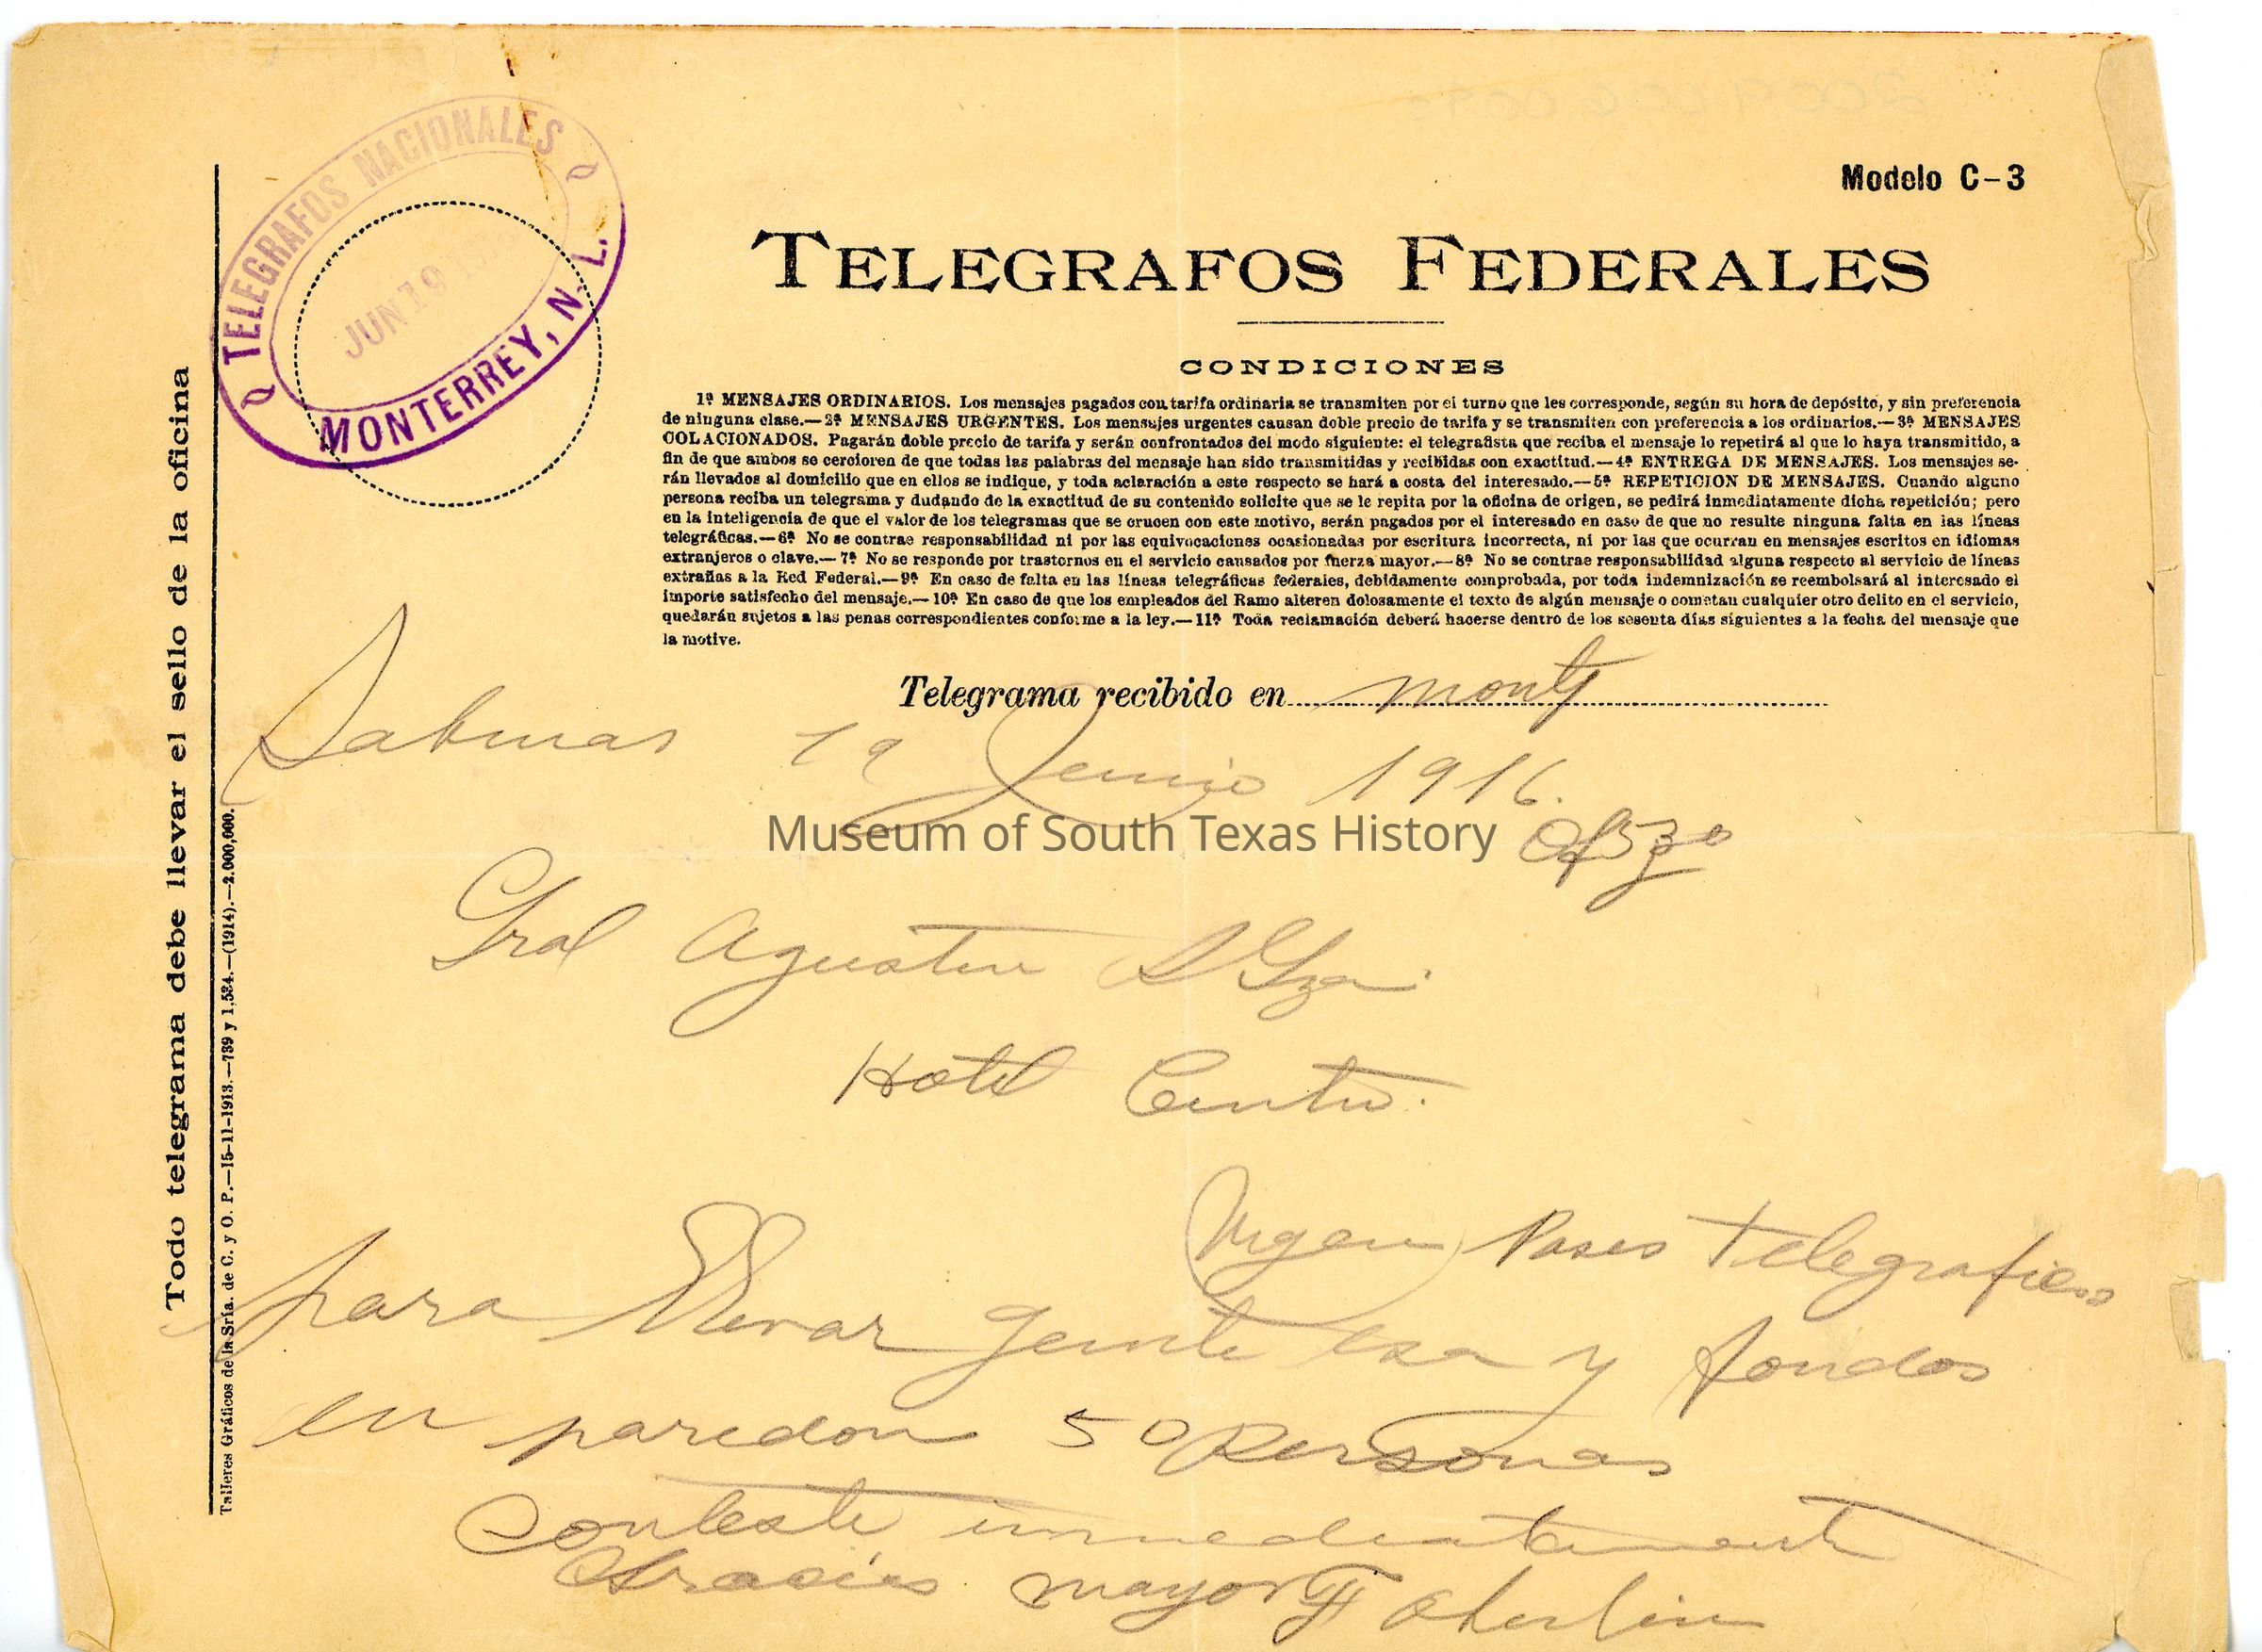 Modelo C-3
TELEGRAFOS NACIONALES
JUN 19
MONTERREY, N. L.
TELEGRAFOS FEDERALES
CONDICIONES
1ª MENSAJES ORDINARIOS. Los mensajes pagados con tarifa ordinaria se transmiten por el turno que les corresponde, según su hora de depósito, y sin preferencia
de ninguna clase.—2ª MENSAJES URGENTES. Los mensajes urgentes causan doble precio de tarifa y se transmiten con preferencia a los ordinarios.—3ª MENSAJES
COLACIONADOS. Pagarán doble precio de tarifa y serán confrontados del modo siguiente: el telegrafista que reciba el mensaje lo repetirá al que lo haya transmitido, a
fin de que ambos se cercioren de que todas las palabras del mensaje han sido transmitidas y recibidas con exactitud.—4ª ENTREGA DE MENSAJES. Los mensajes se-
rán llevados al domicilio que en ellos se indique, y toda aclaración a este respecto se hará a costa del interesado.—5ª REPETICION DE MENSAJES. Cuando alguno
persona reciba un telegrama y dudando de la exactitud de su contenido solicite que se le repita por la oficina de origen, se pedirá inmediatamente dicha repetición; pero
en la inteligencia de que el valor de los telegramas que se crucen con este motivo, serán pagados por el interesado en caso de que no resulte ninguna falta en las líneas
telegráficas.—6ª No se contrae responsabilidad ni por las equivocaciones ocasionadas por escritura incorrecta, ni por las que ocurran en mensajes escritos en idiomas
extranjeros o clave.—7ª No se responde por trastornos en el servicio causados por fuerza mayor.—8ª No se contrae responsabilidad alguna respecto al servicio de líneas
extrañas a la Red Federal.—9ª En caso de falta en las líneas telegráficas federales, debidamente comprobada, por toda indemnización se reembolsará al interesado el
importe satisfecho del mensaje.—10ª En caso de que los empleados del Ramo alteren dolosamente el texto de algún mensaje o cometan cualquier otro delito en el servicio,
quedarán sujetos a las penas correspondientes conforme a la ley.—11ª Toda reclamación deberá hacerse dentro de los sesenta días siguientes a la fecha del mensaje que
la motive.
Telegrama recibido en Monty
Sabinas 19 Junio 1916.
Museum of South Texas History
Gral Agustin S Gza.
Hotel Centro.
Urgen Pases Telegraficos
para Llevar gente esa y fondos
en paredon 50 Personas
Conteste inmediatamente
Gracias mayor
Todo telegrama debe llevar el sello de la oficina
Talleres Gráficos de la Sría. de C. y O. P.—15-11-1913.—739 y 1,534.—(1914).—2.000,000.